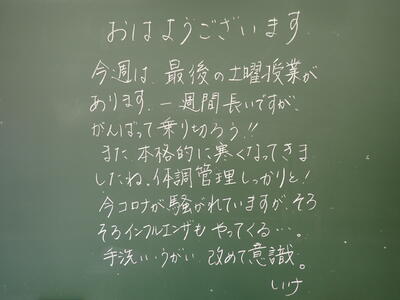 おはようございます
今週は、最後の土曜授業が
あります。一週間長いですが、
がんばって乗り切ろう!!
また、本格的に寒くなってきま
したね。体調管理しっかりと!
今コロナが騒がれていますが、そろ
そろインフルエンザもやってくる…。
手洗い・うがい、改めて意識。
いけ